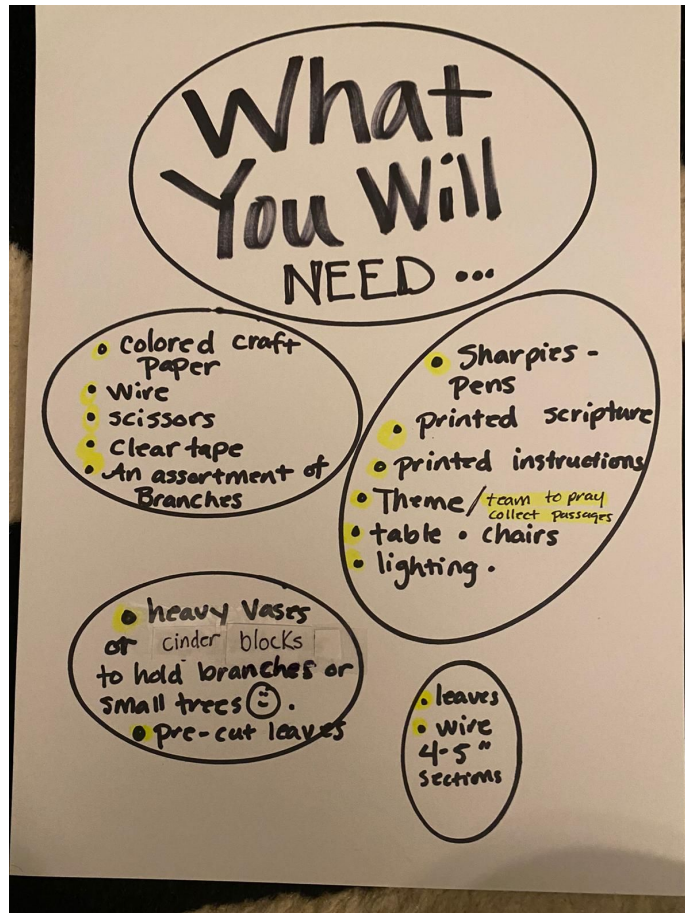 What
You Will
NEED...
• colored craft
paper
• Wire
• scissors
• Clear tape
• An assortment of
Branches
• Sharpies -
pens
• printed scripture
• printed instructions
• Theme / team to pray
collect passages
• table • chairs
• lighting.
• heavy Vases
or cinder blocks
to hold branches or
small trees ☺.
• pre-cut leaves
• leaves
• wire
4-5"
sections